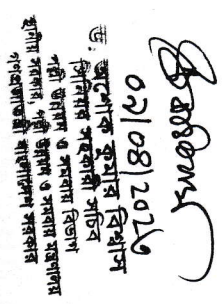 ড. অশোক কুমার বিশ্বাস
সিনিয়র সহকারী সচিব
পল্লী উন্নয়ন ও সমবায় বিভাগ
স্থানীয় সরকার, পল্লী উন্নয়ন ও সমবায় মন্ত্রণালয়
গণপ্রজাতন্ত্রী বাংলাদেশ সরকার